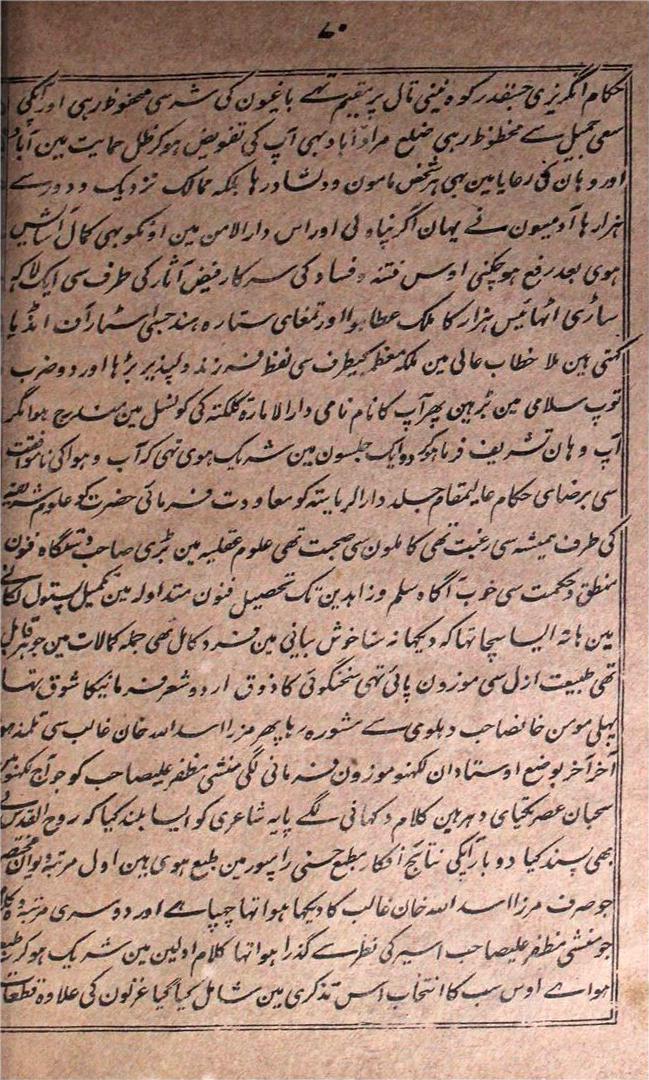 ۷۰
حکام انگریزی جسقدر کوہ نینی تال پر مقیم تھے باغیون کی شر سی محفوظ رہی اور آپکی
سعی جمیل سے محظوظ رہی ضلع مرادآباد بہی آپ کی تفویض ہوکر ظل حمایت مین آیا
اور وہان کی رعایا مین بہی ہر شخص مامون و دلشاد رہا بلکہ ممالک نزدیک و دور سے
ہزارہا آدمیون نے یہان اگر پناہ لی اور اس دارالامن مین اونکو بہی کمال آسایش
ہوی بعد رفع ہوچکنی اوس فتنہ و فساد کی سرکار فیض آثار کی طرف سی ایک لاکہہ
ساڑی اٹھائیس ہزار کا ملک عطا ہوا اور تمغای ستارہ ہند جسی اسٹار آف انڈیا
کہتی ہین ملا خطاب عالی مین ملکہ معظمہ کیطرف سی لفظ فرزند دلپذیر بڑہا اور دو ضرب
توپ سلامی مین بڑہین پھر آپ کا نام نامی دارالامارۃ کلکتہ کی کونسل مین مندرج ہوا مگر
آپ وہان تشریف فرما ہوکر دو ایک جلسون مین شریک ہوی تہی کہ آب و ہوا کی ناموافقت
سی برضای حکام عالیمقام جلد دارالریاستہ کو معاودت فرمائی حضرت کو علوم شریفہ
کی طرف ہمیشہ سی رغبت تھی کاملون سی صحبت تھی علوم عقلیہ مین بڑی صاحب دستگاہ فنون
منطق و حکمت سی خوب آگاہ سلم و زاہدین تک تحصیل فنون متداولہ مین تکمیل پستول لگانے
مین ہاتہ ایسا سچا تہا کہ دیکہا نہ سنا خوش بیانی مین فرد کامل تھی جملہ کمالات مین جوہر قابل
تھی طبیعت ازل سی موزون پائی تہی سخنگوئی کا ذوق اردو شعر فرمانیکا شوق تہا
پہلی مومن خانصاحب دہلوی سے مشورہ رہا پھر مرزا اسد اللہ خان غالب سی تلمذ ہوا
آخر آخر بوضع اوستادان لکھنو موزون فرمانی لگی منشی مظفر علیصاحب کو جو آج لکھنو مین
سحبان عصر یکتای دہر ہین کلام دکہانی لگے پایہ شاعری کو ایسا بلند کیا کہ روح القدس نے
بھی پسند کیا دو بار آپکی نتائج افکار مطبع حسنی رامپور مین طبع ہوی ہین اول مرتبہ دیوان مختصر
جو صرف مرزا اسد اللہ خان غالب کا دیکہا ہوا تہا چہپا ہے اور دوسری مرتبہ وہ کلام
جو منشی مظفر علیصاحب اسیر کی نظر سے گذرا ہوا تہا کلام اولین مین شریک ہوکر طبع
ہوا ہے اوس سب کا انتخاب اس تذکری مین شامل کیا گیا غزلون کی علاوہ قطعات